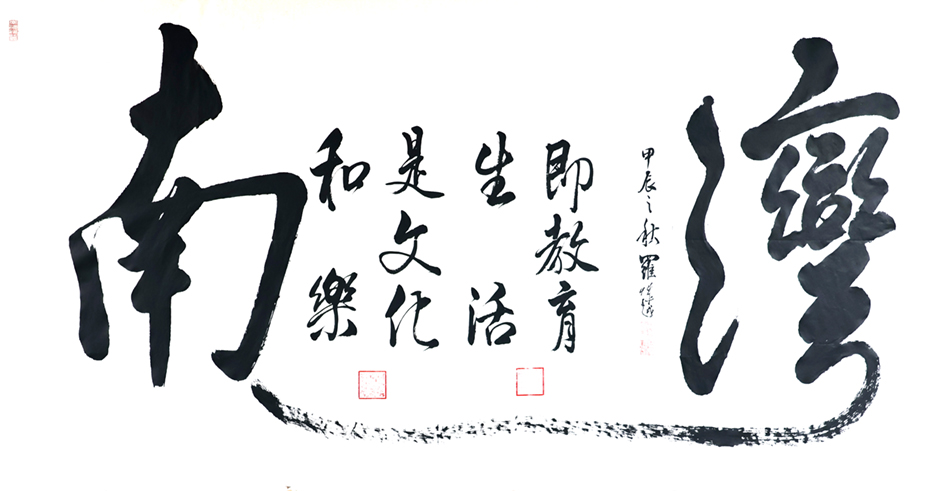 南灣
和樂
是文化
生活
即教育
甲辰之秋羅